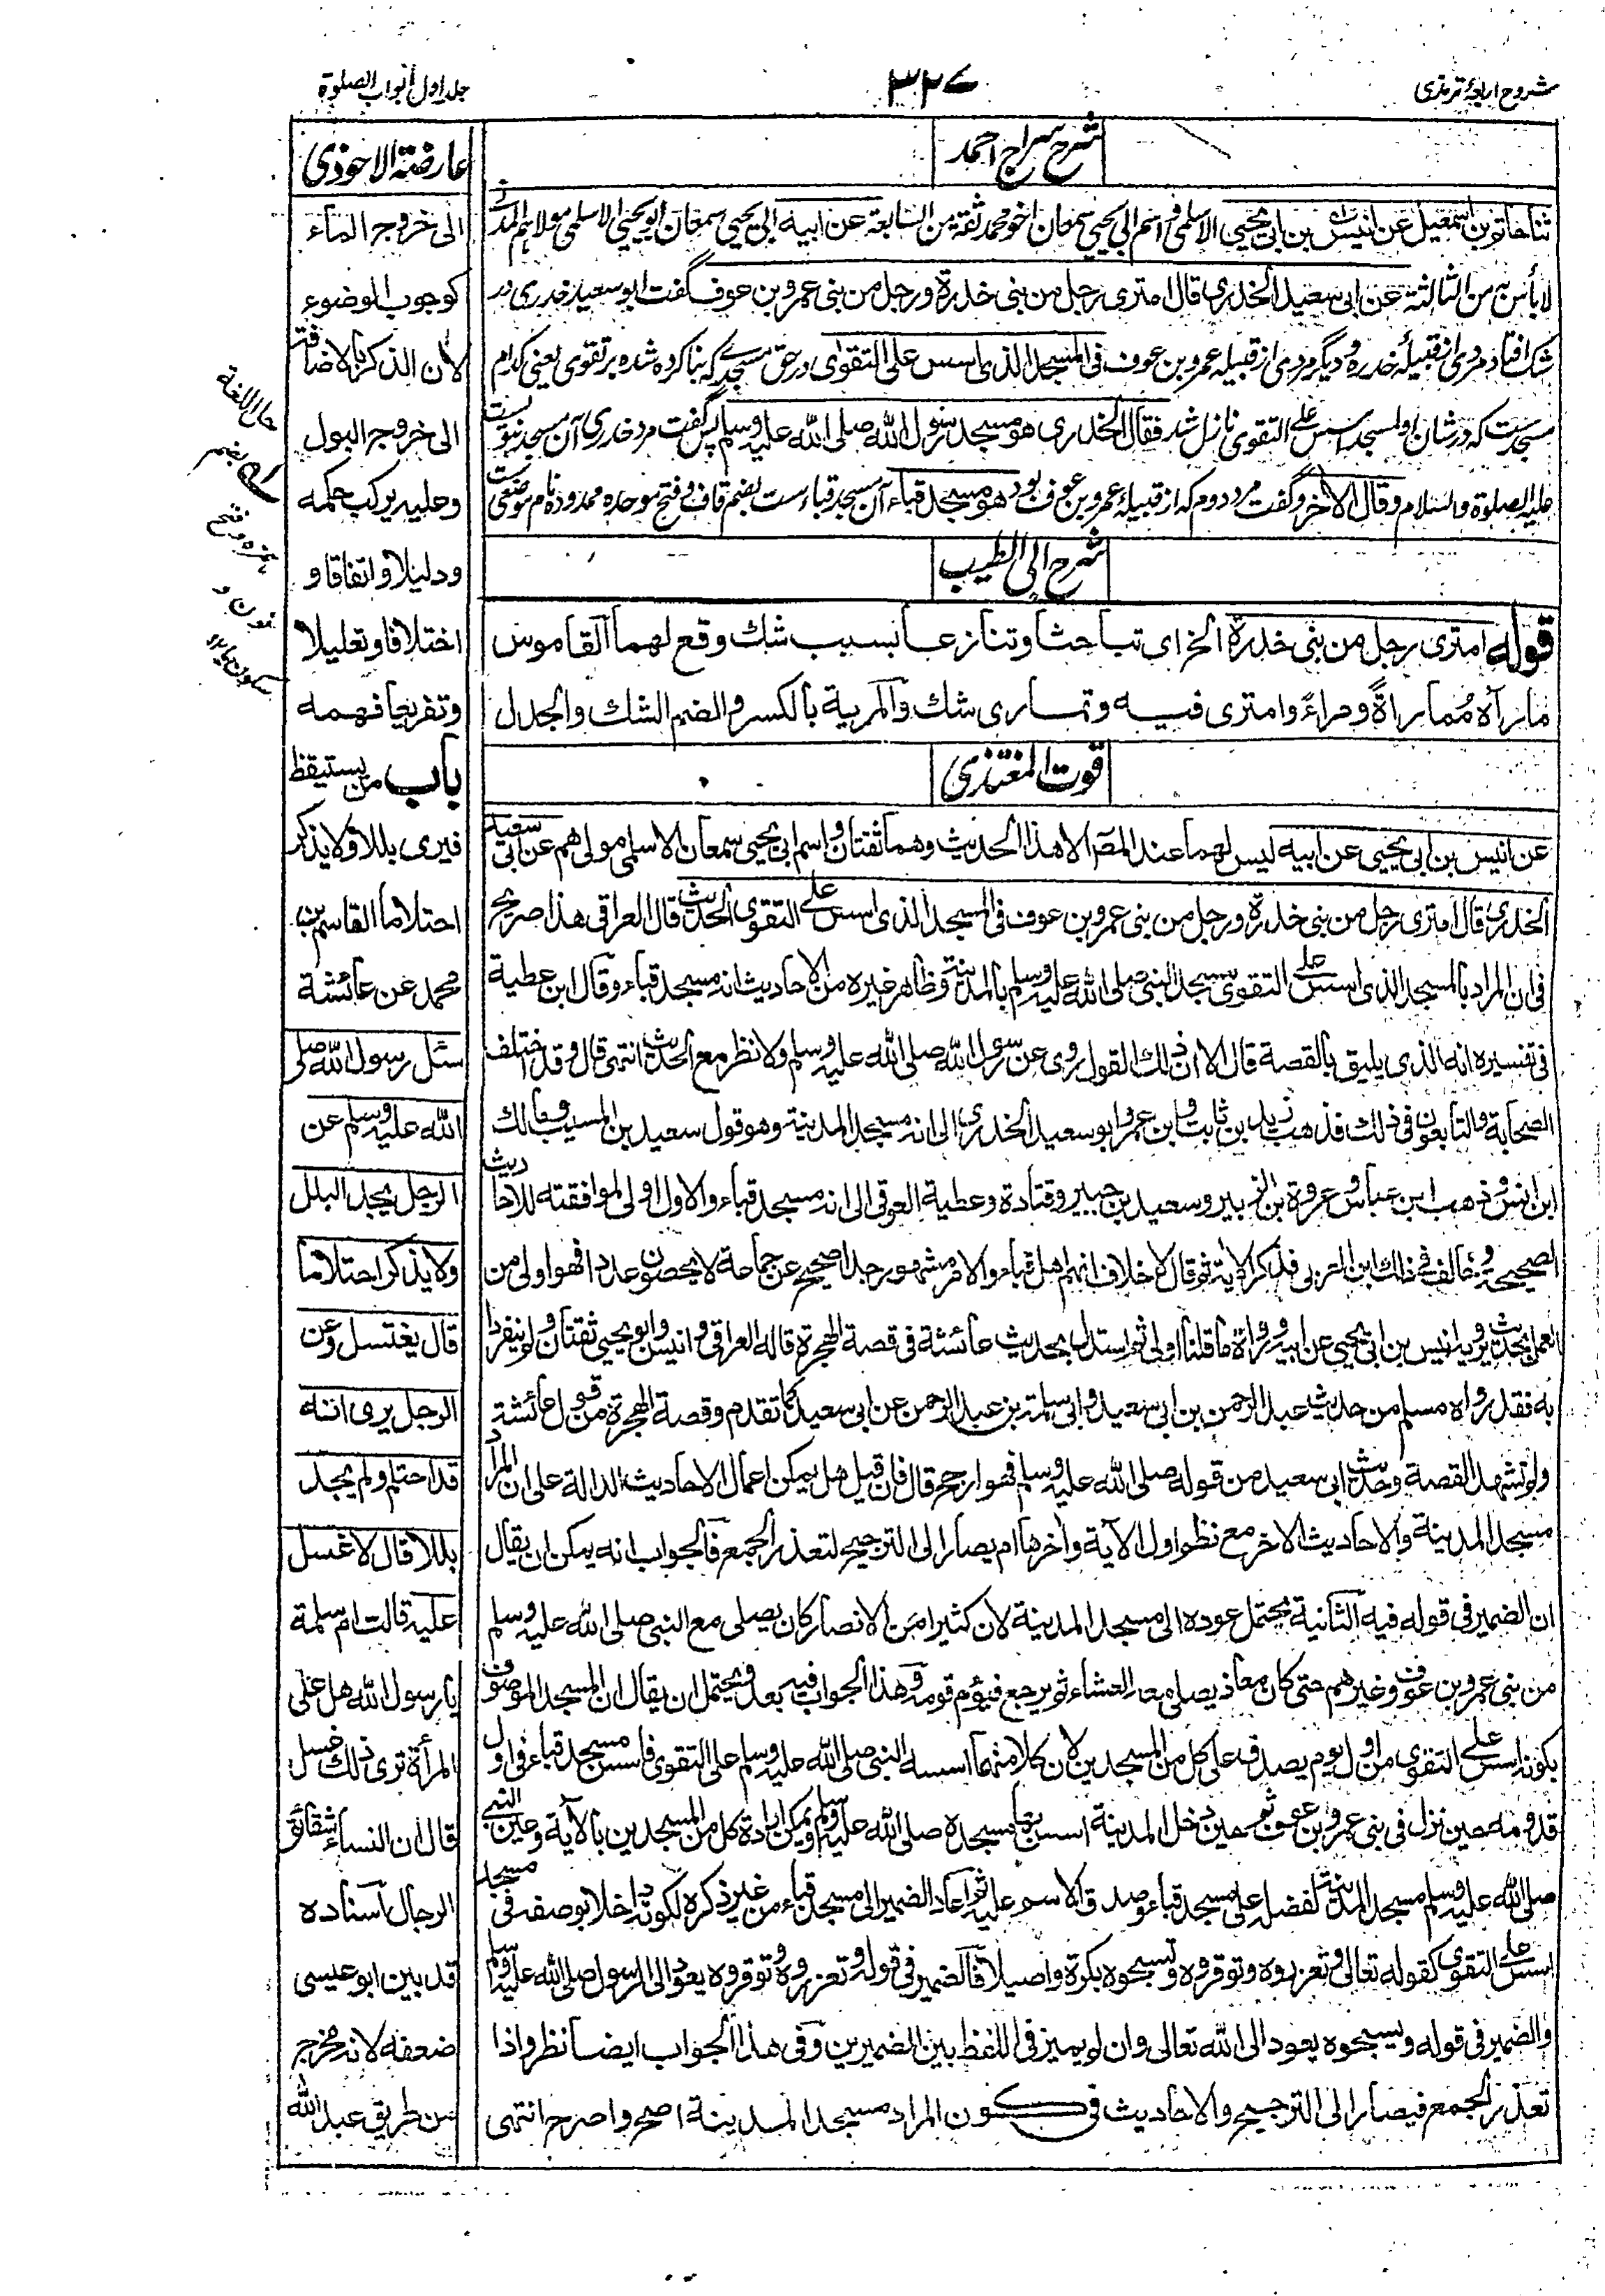 شروح اربعۂ ترمذی
۳۲۷
جلد اول ابواب الصلوة
شرح سراج احمد
ثنا حاتم بن اسمعیل عن انیس بن ابی یحیی الاسلمی و اسم ابی یحیی سمعان اخو محمد ثقة من السابعة عن ابیه ابی یحیی سمعان ابو یحیی الاسلمی مولاهم المدنی
لا بأس به من الثالثة عن ابی سعید الخدری قال امتری رجل من بنی خدرة و رجل من بنی عمرو بن عوف گفت ابو سعید خدری در
شک افتاد مردی از قبیلۂ خدره و دیگر مردی از قبیله عمرو بن عوف فی المسجد الذی اسس علی التقوی در حق مسجدے که بنا کرده شده بر تقوی یعنی کدام
مسجدست که در شان او لمسجد اسس علی التقوی نازل شد فقال الخدری هو مسجد رسول الله صلی الله علیه وسلم پس گفت مرد خدری آن مسجد نبویست
علیه الصلوة والسلام وقال الاخر و گفت مرد دوم که از قبیلۂ عمرو بن عوف بود هو مسجد قباء آن مسجد قباء ست بضم قاف و فتح موحده ممدوده نام موضعی ست
شرح ابی الطیب
قوله امتری رجل من بنی خدرة الخ ای تباحثا وتنازعا بسبب شك وقع لهما القاموس
ماراه مُماراةً ومراءً وامتری فیه وتماری شك والمریة بالکسر والضم الشك والجدل
قوت المغتذی
عن انیس بن ابی یحیی عن ابیه لیس لهما عند المص الا هذا الحدیث وهما ثقتان واسم ابی یحیی سمعان الاسلمی مولاهم عن ابی سعید
الخدری قال امتری رجل من بنی خدرة ورجل من بنی عمرو بن عوف فی المسجد الذی اسس علی التقوی الحدیث قال العراقی هذا صریح
فی ان المراد بالمسجد الذی اسس علی التقوی مسجد النبی صلی الله علیه وسلم بالمدینة وظاهر غیره من الاحادیث انه مسجد قباء وقال ابن عطیة
فی تفسیره انه الذی یلیق بالقصة قال الا ان ذلك القول روی عن رسول الله صلی الله علیه وسلم ولا نظر مع الحدیث انتهی قال وقد اختلف
الصحابة والتابعون فی ذلك فذهب زید بن ثابت وابن عمر وابو سعید الخدری الی انه مسجد المدینة وهو قول سعید بن المسیب ومالك
ابن انس وذهب ابن عباس وعروة بن الزبیر وسعید بن جبیر وقتادة وعطیة العوفی الی انه مسجد قباء والاول اولی لموافقته للاحادیث
الصحیحة وخالف فی ذلك ابن العربی فذکر الایة ثم قال لا خلاف انهم اهل قباء والامر مشهور جدا صحیح عن جماعة لا یحصون عددا فهو اولی من
العمل بحدیث یرویه انیس بن ابی یحیی عن ابیه ورواة ما قلنا اولی ثم استدل بحدیث عائشة فی قصة الهجرة قاله العراقی وانیس وابو یحیی ثقتان ولم ینفردا
به فقد رواه مسلم من حدیث عبد الرحمن بن ابی سعید وابی سلمة بن عبد الرحمن عن ابی سعید کما تقدم وقصة الهجرة من قول عائشة
ولم تشهد القصة وحدیث ابی سعید من قوله صلی الله علیه وسلم فهو ارجح قال فان قیل هل یمکن اعمال الاحادیث الدالة علی ان المراد
مسجد المدینة والاحادیث الاخر مع نظم اول الآیة واخرها ام یصار الی الترجیح لتعذر الجمع فالجواب انه یمکن ان یقال
ان الضمیر فی قوله فیه الثانیة یحتمل عوده الی مسجد المدینة لان کثیرا من الانصار کان یصلی مع النبی صلی الله علیه وسلم
من بنی عمرو بن عوف وغیرهم حتی کان معاذ یصلی معه العشاء ثم یرجع فیؤم قومه وهذا الجواب فیه بعد ویحتمل ان یقال ان المسجد الموصوف
بکونه اسس علی التقوی من اول یوم یصدق علی کل من المسجدین لان کلا منهما اسسه النبی صلی الله علیه وسلم علی التقوی فاسس مسجد قباء فی اول
قدومه حین نزل فی بنی عمرو بن عوف ثم حین دخل المدینة اسس بها مسجده صلی الله علیه وسلم ویمکن ارادة کل من المسجدین بالآیة وعین النبی
صلی الله علیه وسلم مسجد المدینة لفضله علی مسجد قباء وصدق الاسم علیه ثم اعاد الضمیر الی مسجد قباء من غیر ذکره لکونه داخلا بوصفه فی مسجد
اسس علی التقوی کقوله تعالی وتعزروه وتوقروه وتسبحوه بکرة واصیلا فالضمیر فی قوله وتعزروه وتوقروه یعود الی الرسول صلی الله علیه وسلم
والضمیر فی قوله ویسبحوه یعود الی الله تعالی وان لم یمیز فی اللفظ بین الضمیرین وفی هذا الجواب ایضا نظر واذا
تعذر الجمع فیصار الی الترجیح والاحادیث فی کون المراد مسجد المدینة اصح واصرح انتهی
عارضة الاحوذی
الی خروجه الماء
کوجوب الوضوء
لان الذکر بالاضافة
الی خروجه البول
وعلیه یرکب حکمه
ودلیلا واتفاقا و
اختلافا وتعلیلا
وتفریعا فهمه
باب من یستیقظ
فیری بللا ولا یذکر
احتلاما القاسم بن
محمد عن عائشة
سئل رسول الله صلی
الله علیه وسلم عن
الرجل یجد البلل
ولا یذکر احتلاما
قال یغتسل وعن
الرجل یری انه
قد احتلم ولم یجد
بللا قال لا غسل
علیه قالت ام سلمة
یا رسول الله هل علی
المرأة تری ذلك غسل
قال ان النساء شقائق
الرجال اسناده
قد بین ابو عیسی
ضعفه لانه مخرج
من طریق عبد الله
حل اللغة
بضم
همزه وفتح
نون و
سکون یاء